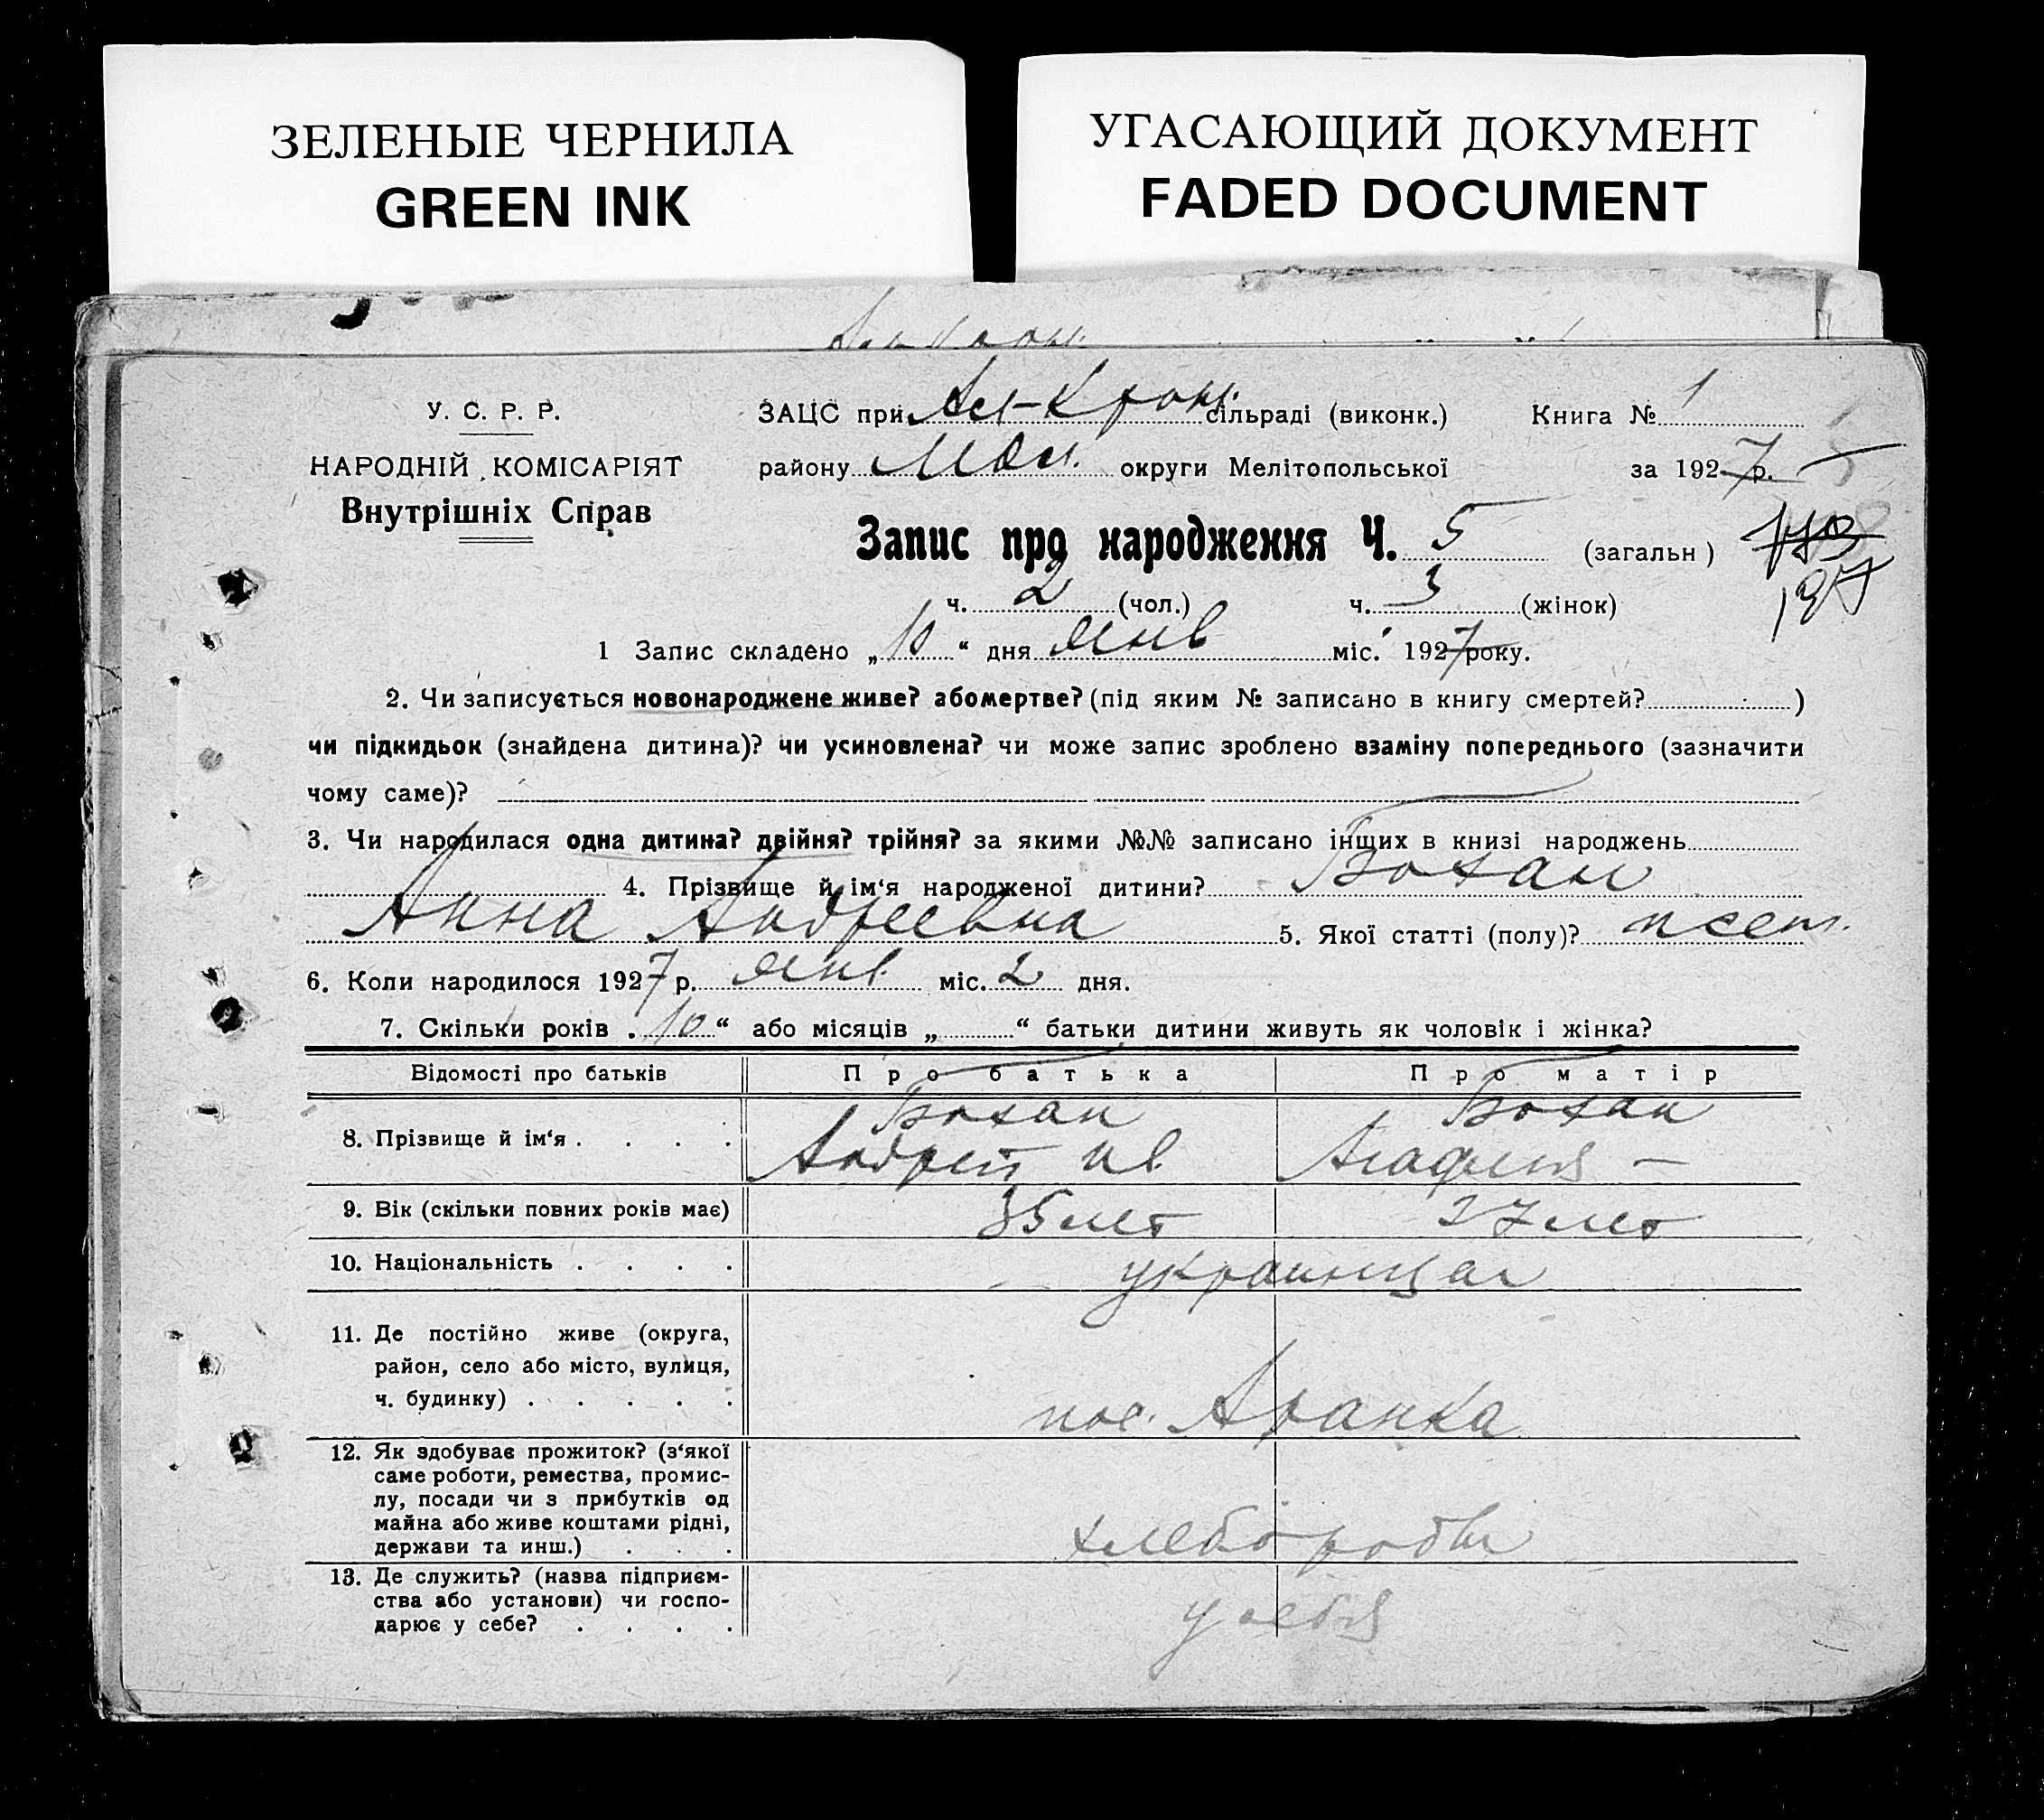 ЗЕЛЕНЫЕ ЧЕРНИЛА
GREEN INK
УГАСАЮЩИЙ ДОКУМЕНТ
FADED DOCUMENT
У. С. Р. Р.
НАРОДНІЙ КОМІСАРІЯТ
Внутрішніх Справ
ЗАЦС при сільраді (виконк.) Книга № 1
району округи Мелітопольської за 1927 р.
Запис про народження Ч. 5 (загальн)
ч. 2 (чол.) ч. 3 (жінок)
1 Запис складено „10“ дня янв міс. 1927 року.
2. Чи записується новонароджене живе? або мертве? (під яким № записано в книгу смертей? )
чи підкидьок (знайдена дитина)? чи усиновлена? чи може запис зроблено взаміну попереднього (зазначити
чому саме)?
3. Чи народилася одна дитина? двійня? трійня? за якими №№ записано інщих в книзі народжень
4. Прізвище й ім‘я народженої дитини? Бохан
Анна Андреевна 5. Якої статті (полу)?
6. Коли народилося 1927 р. янв. міс. 2 дня.
7. Скільки років „10“ або місяців „ “ батьки дитини живуть як чоловік і жінка?
Відомості про батьків Про батька Про матір
8. Прізвище й ім‘я . . . . Бохан Андрей Ив. Бохан Агафия —
9. Вік (скільки повних років має) 35 лет 27 лет
10. Національність . . . .
11. Де постійно живе (округа,
район, село або місто, вулиця,
ч. будинку) . . . . . пос.
12. Як здобуває прожиток? (з‘якої
саме роботи, ремества, промис-
лу, посади чи з прибутків од
майна або живе коштами рідні,
держави та инш.) . . . хлебороб
13. Де служить? (назва підприєм-
ства або установи) чи госпо-
дарює у себе? . . . . у себя